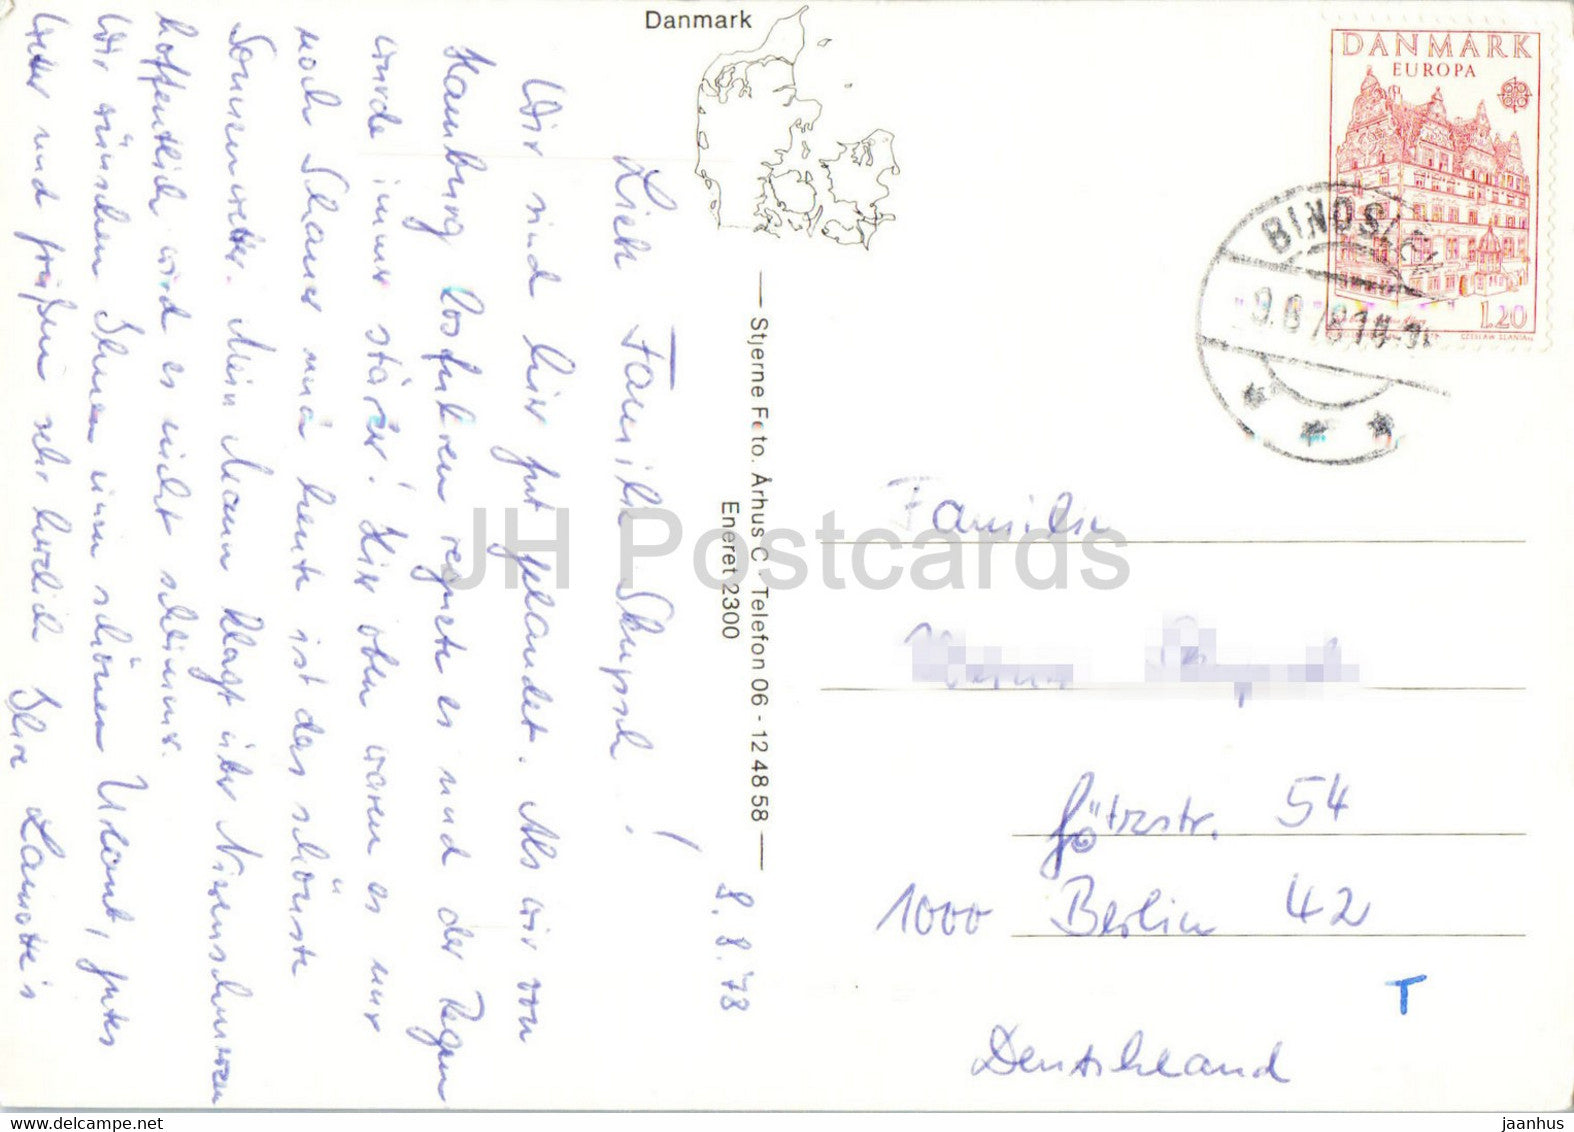 Danmark
DANMARK
EUROPA
1.20
CZESLAW SLANIA
BINDSLEV
9.8.78 14
Stjerne Foto. Århus C. Telefon 06 - 12 48 58
Eneret 2300
8.8.'78
Liebe Familie
Wir sind hier gut gelandet. Als wir von
Hamburg losfuhren regnete es und der Regen
wurde immer stärker! Hier oben waren es nur
noch Schauer und heute ist das schönste
Sonnenwetter. Mein Mann klagt über Nierenschmerzen
hoffentlich wird es nicht schlimmer.
Wir wünschen Ihnen einen schönen Urlaub, gutes
Wetter und grüßen sehr herzlich Ihre
Familie
Götzstr. 54
1000 Berlin 42
Deutschland
T
JH Postcards
www.delcampe.net
jaanhus